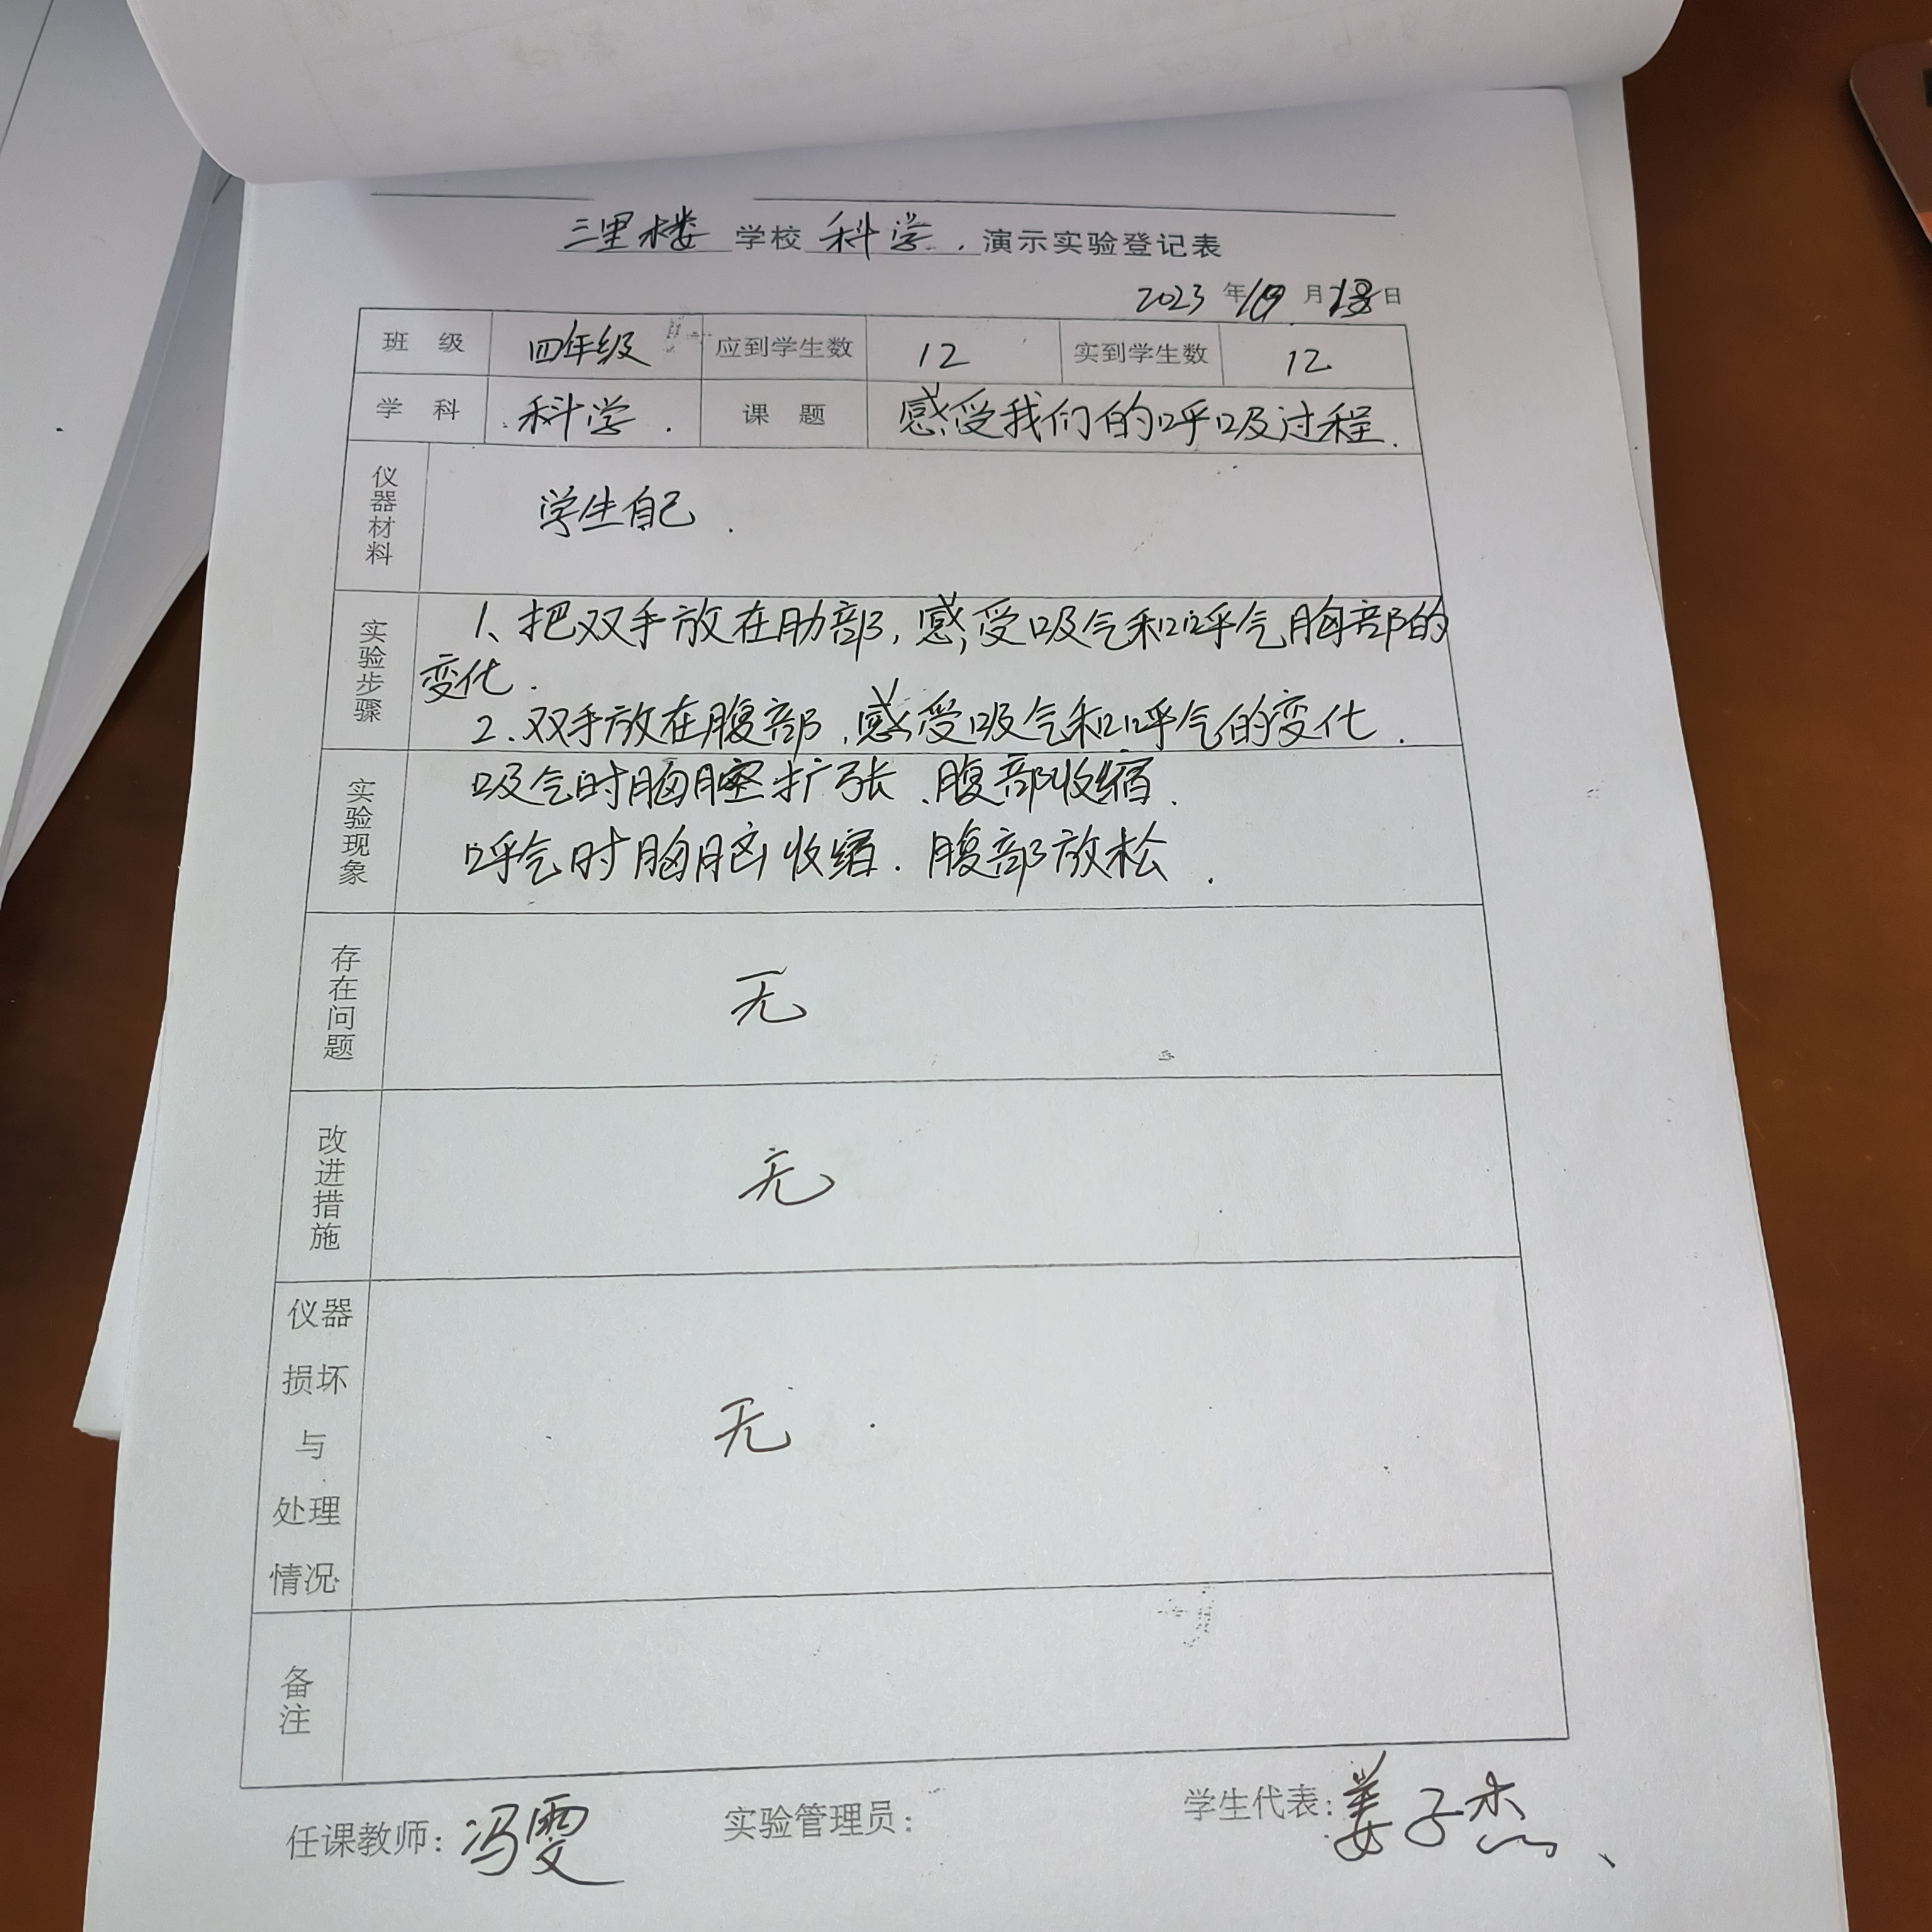 三里楼学校科学.演示实验登记表
2023年10月18日
班级 四年级 应到学生数 12 实到学生数 12
学科 科学. 课题 感受我们的呼吸过程.
仪器材料 学生自己.
实验步骤
1、把双手放在肋部,感受吸气和呼气胸部的
变化.
2.双手放在腹部,感受吸气和呼气的变化.
实验现象
吸气时胸腔扩张、腹部收缩.
呼气时胸脑收缩.腹部放松.
存在问题 无
改进措施 无
仪器
损坏
与
处理
情况
无.
备注
任课教师:冯雯 实验管理员: 学生代表:姜子杰、